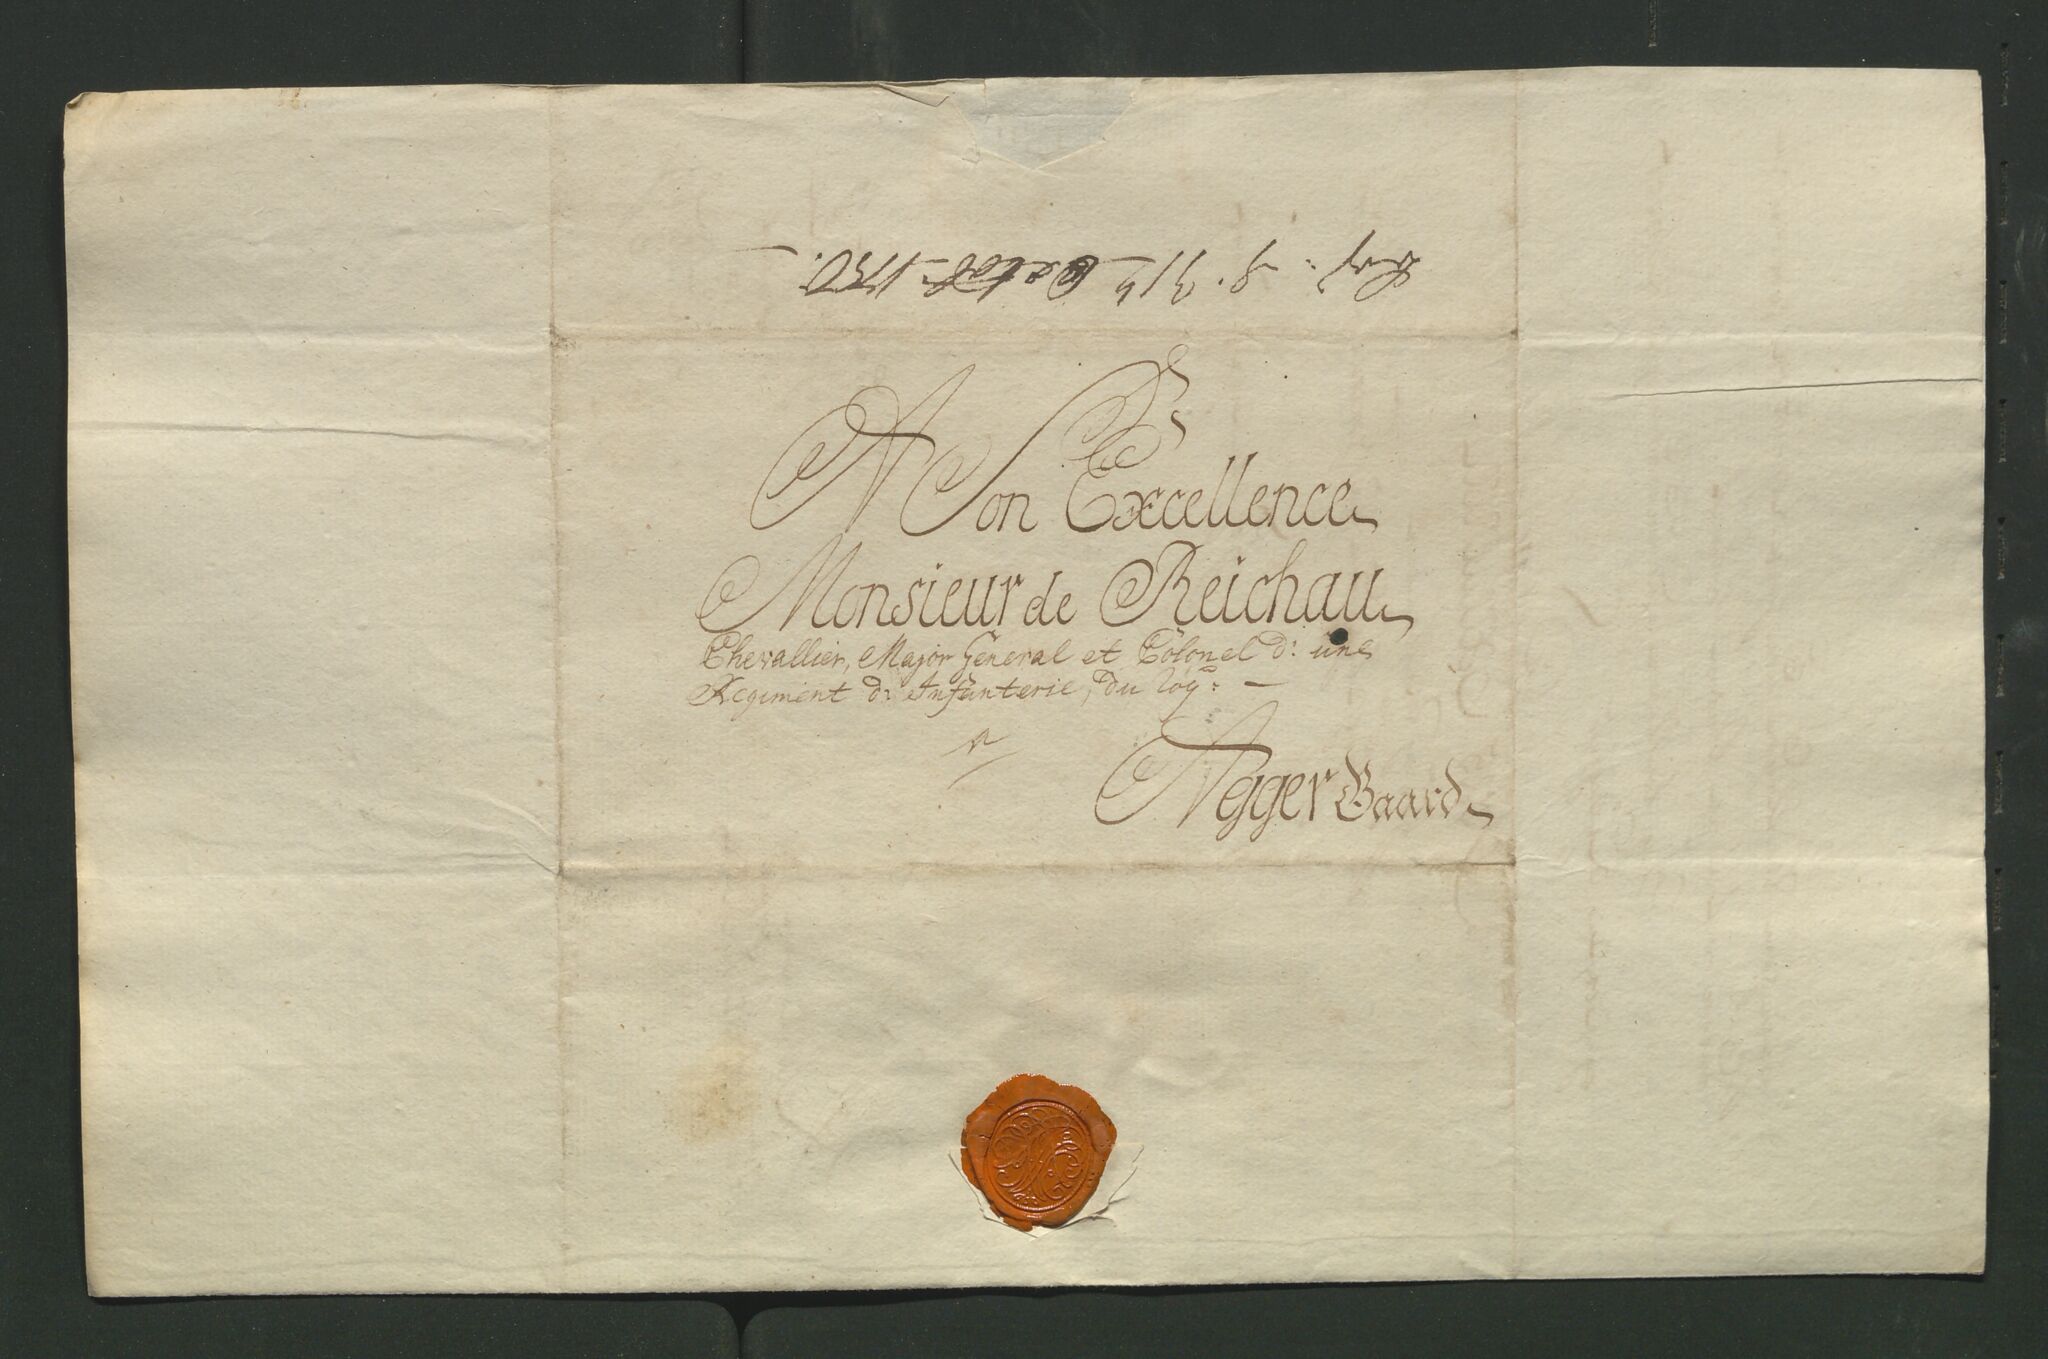 A Son Excellence
Monsieur de Reichau
Chevallier, Major General et Colonel d: une
Regiment d: Infanterie, du Roy:
a
Agger Gaard
31 Octobr 1750.